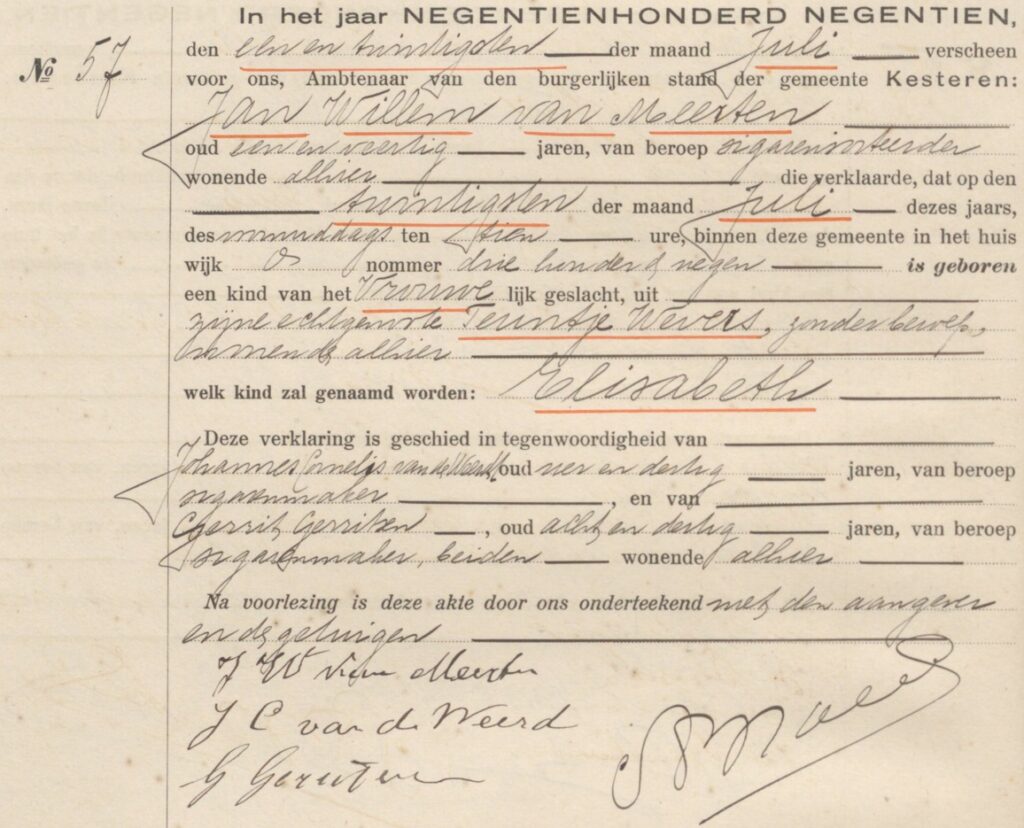 In het jaar NEGENTIENHONDERD NEGENTIEN,
No 57
den een en twintigsten der maand Juli verscheen
voor ons, Ambtenaar van den burgerlijken stand der gemeente Kesteren:
Jan Willem van Meerten
oud een en veertig jaren, van beroep sigarensorteerder
wonende alhier die verklaarde, dat op den
twintigsten der maand Juli dezes jaars,
des voormiddags ten tien ure, binnen deze gemeente in het huis
wijk nommer drie honderd negen is geboren
een kind van het Vrouwe lijk geslacht, uit
zijne echtgenoote Teuntje Wevers, zonder beroep,
wonende alhier
welk kind zal genaamd worden: Elisabeth
Deze verklaring is geschied in tegenwoordigheid van
Johannes Cornelis van de Weerd, oud vier en dertig jaren, van beroep
sigarenmaker, en van
Gerrit Gerritsen, oud acht en dertig jaren, van beroep
sigarenmaker, beiden wonende alhier
Na voorlezing is deze akte door ons onderteekend met den aangever
en de getuigen
J W van Meerten
J C van de Weerd
G Gerritsen